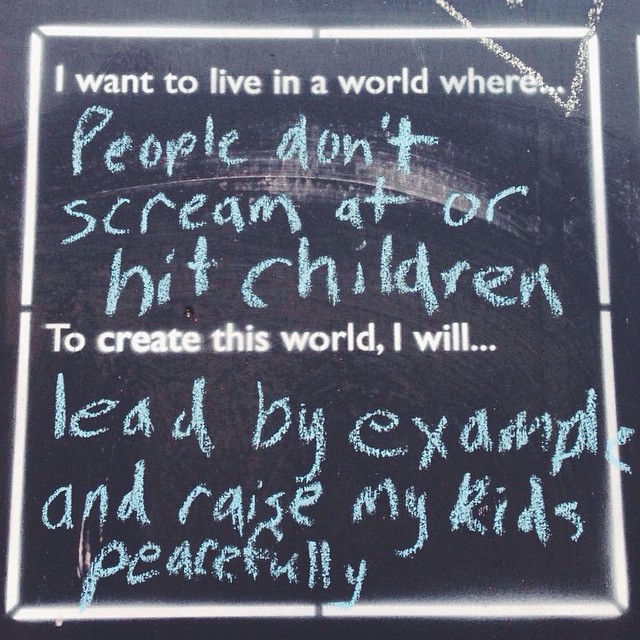 I want to live in a world where...
People don't
scream at or
hit children
To create this world, I will...
lead by example
and raise my kids
peacefully